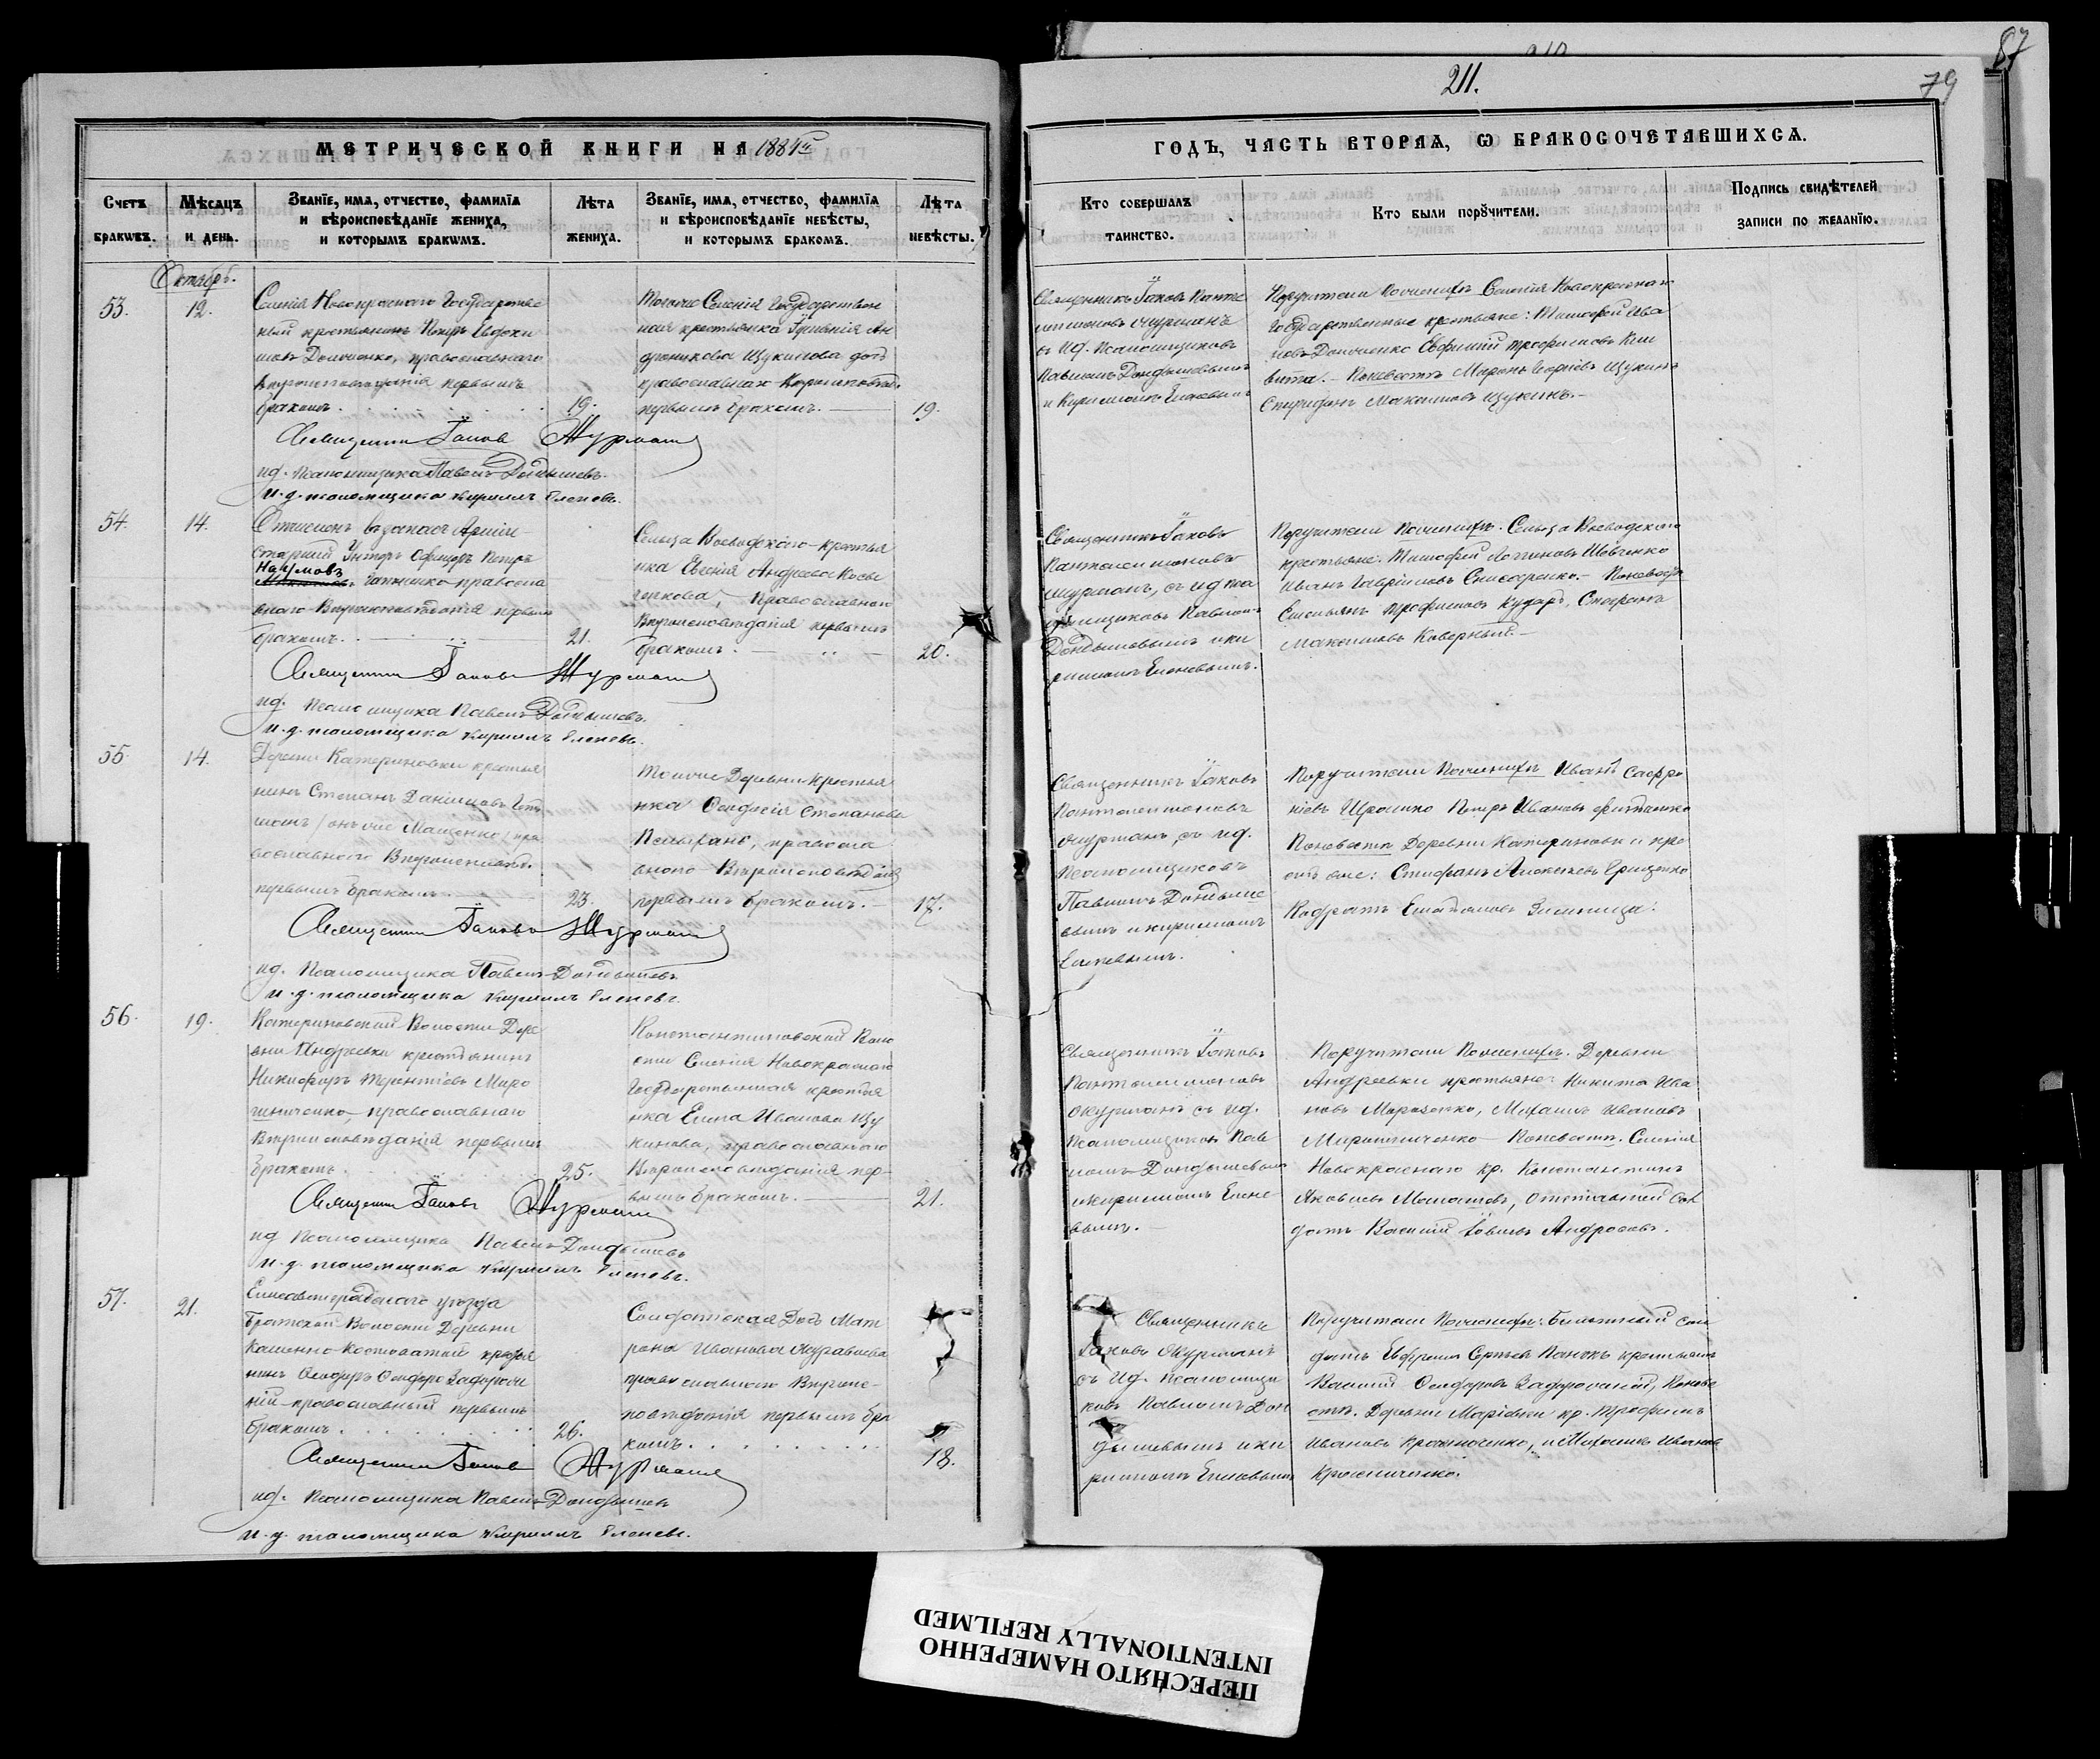 87
211.
79
МЕТРИЧЕСКОЙ КНИГИ НА 1884й
ГОДЪ, ЧАСТЬ ВТОРАЯ, Ѡ БРАКОСОЧЕТАВШИХСЯ.
Счетъ браковъ.
Мѣсяцъ и день.
Званїе, имя, отчество, фамилїа
и вѣроисповѣданїе жениха,
и которымъ бракомъ.
Лѣта
жениха.
Званїе, имя, отчество, фамилїа
и вѣроисповѣданїе невѣсты,
и которымъ бракомъ.
Лѣта
невѣсты.
Кто совершалъ
таинство.
Кто были порꙋчители.
Подпись свидѣтелей
записи по желанїю.
Октябрь.
53.
12.
Селенія Новокраснаго Государствен
ный крестьянинъ Петръ Евдоки
мовъ православнаго
Вѣроисповѣданія первымъ
бракомъ.
19.
Тогоже Селенія Государствен
ная крестьянка Ан
дроникова Щукинова дочь
православная Вѣроисповѣд.
первымъ бракомъ.
19.
Священникъ Іаковъ Панте
леимоновъ Журманъ
съ И.д. псаломщиковъ
Павломъ Дондышевымъ
и Кирилломъ Еленевымъ
Поручители по женихѣ Селенія Новокраснаго
Государственные крестьяне: Тимофей Ива
новъ Евфимій Трофимовъ
По невѣстѣ Щукинъ
Спиридонъ Максимовъ Щукинъ.
Священникъ Іаковъ Журманъ
и.д. псаломщика Павелъ Дондышевъ.
и.д. псаломщика Кириллъ Еленевъ.
54.
14.
въ запасъ Арміи
старшій Унтеръ Офицеръ Петръ
Наумовъ
православ
наго Вѣроисповѣданія первымъ
бракомъ.
21.
Сельца Воеводскаго крестья
нка Евгенія Андреева
православнаго
Вѣроисповѣданія первымъ
бракомъ.
20.
Священникъ Іаковъ
Пантелеимоновъ
Журманъ, съ и.д. пса
ломщиковъ Павломъ
Дондышевымъ и Ки
рилломъ Еленевымъ.
Поручители по женихѣ. Сельца Воеводскаго
крестьяне: Тимофей Логиновъ Шевченко
Иванъ Гавріиловъ По невѣстѣ
Емельянъ Трофимовъ Стефанъ
Максимовъ
Священникъ Іаковъ Журманъ
и.д. псаломщика Павелъ Дондышевъ.
и.д. псаломщика Кириллъ Еленевъ.
55.
14.
Деревни Катериновки крестья
нинъ Степанъ Даніиловъ Гет
манъ /онъ же Мащенко/ пра
вославнаго Вѣроисповѣд.
первымъ бракомъ.
23.
Тойже Деревни крестья
нка Степанова
православ
наго Вѣроисповѣданія
первымъ бракомъ.
17.
Священникъ Іаковъ
Пантелеимоновъ
Журманъ, съ и.д.
Псаломщиковъ
Павломъ Дондыше
вымъ и Кирилломъ
Еленевымъ.
Поручители по женихѣ Иванъ Софро
ніевъ Петръ Ивановъ
По невѣстѣ Деревни Катериновки кре
стьяне: Стефанъ Алексѣевъ Грищенко
Зимница.
Священникъ Іаковъ Журманъ
и.д. псаломщика Павелъ Дондышевъ
и.д. псаломщика Кириллъ Еленевъ.
56.
19.
Катериновской Волости Дере
вни Андреевки крестьянинъ
Никифоръ Терентіевъ Миро
шниченко, православнаго
Вѣроисповѣданія первымъ
бракомъ.
25.
Константиновской Воло
сти Селенія Новокраснаго
Государственная крестья
нка Елена Иванова Щу
кинова, православнаго
Вѣроисповѣданія пер-
вымъ бракомъ.
21.
Священникъ Іаковъ
Пантелеимоновъ
Журманъ съ и.д.
Псаломщиковъ Пав
ломъ Дондышевымъ
и Кирилломъ Елене
вымъ.
Поручители по женихѣ. Деревни
Андреевки крестьяне: Никита Ива
новъ Михаилъ Ивановъ
Мирошниченко По невѣстѣ. Селенія
Новокраснаго кр. Константинъ
Яковлевъ отставной сол
датъ Василій Андросовъ.
Священникъ Іаковъ Журманъ
и.д. псаломщика Павелъ Дондышевъ
и.д. псаломщика Кириллъ Еленевъ.
57.
21.
Елисаветградскаго уѣзда
Братской Волости Деревни
Каменно-Костоватой крестья
нинъ Ѳеодоръ Ѳеодоровъ Задорож
ній православный первымъ
бракомъ.
26.
Солдатская Дочь Мат
рона Иванова Журавлева
православнаго Вѣроис-
повѣданія первымъ бра
комъ.
18.
Священникъ
Іаковъ Журманъ
съ И.д. псаломщи
ковъ Павломъ Дон
дышевымъ и Ки
рилломъ Еленевымъ
Поручители по женихѣ: Билетный сол
датъ Ефремъ Сергѣевъ крестьянинъ
Василій Ѳеодоровъ Задорожній, По невѣ
стѣ. Деревни Маріевки кр. Трофимъ
Ивановъ и Михаилъ Ивановъ
Священникъ Іаковъ Журманъ
и.д. псаломщика Павелъ Дондышевъ
и.д. псаломщика Кириллъ Еленевъ.
ПЕРЕСНЯТО НАМЕРЕННО
INTENTIONALLY REFILMED